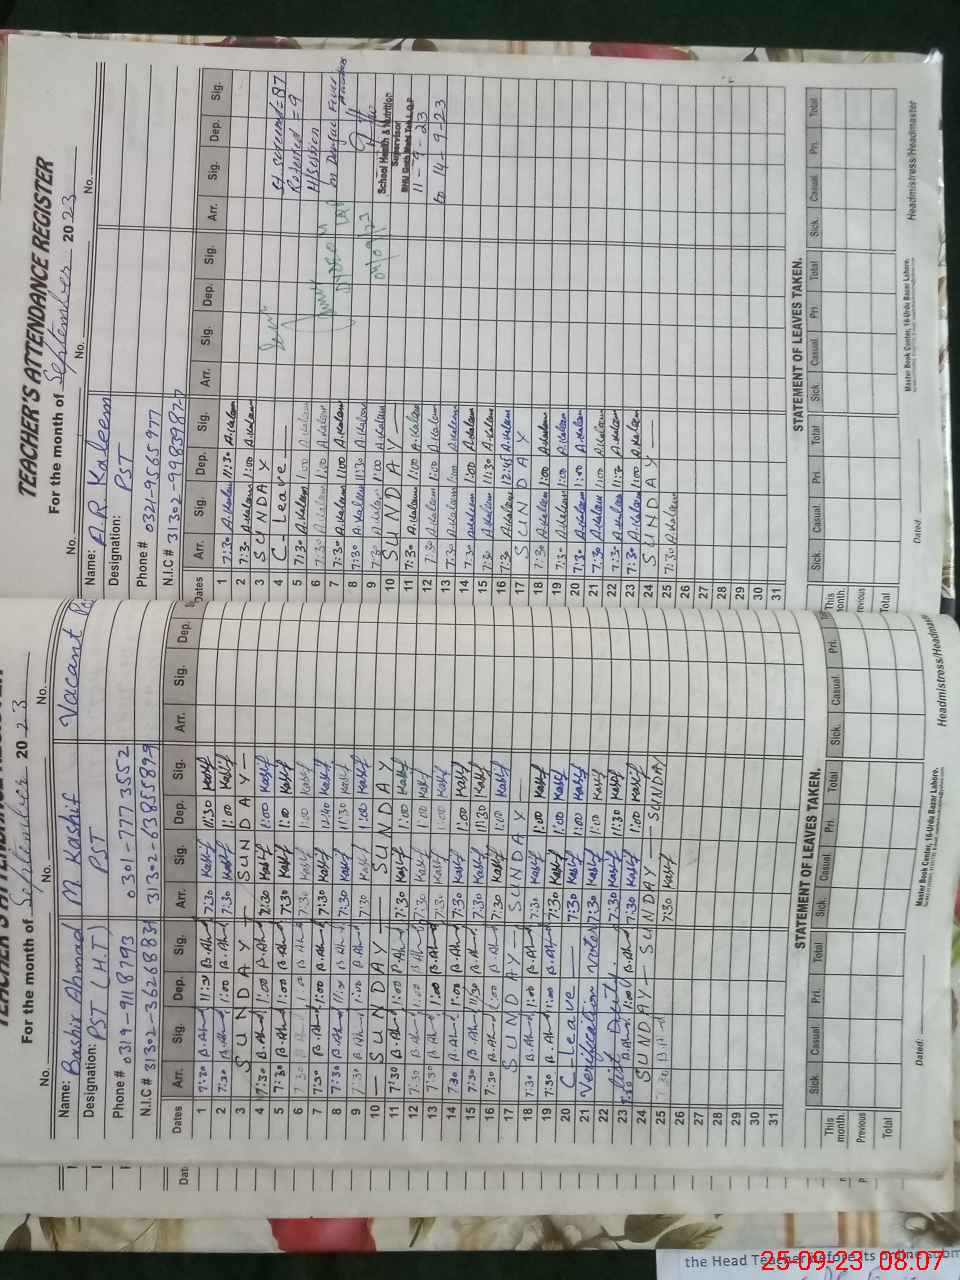 TEACHER'S ATTENDANCE REGISTER
For the month of September 2023
No. No. No.
Name: Bashir Ahmad M Kashif Vacant
Designation: PST (H.T) PST
Phone # 0319-9118793 0301-7773552
N.I.C # 31302-3626883 31302-6385899
Dates Arr. Sig. Dep. Sig. Arr. Sig. Dep. Sig. Arr. Sig. Dep.
1 7:30 B.Ahmd B.Ahmd 7:30 Kashif 11:30 Kashif
2 7:30 B.Ahmd 1:00 B.Ahmd 7:30 Kashif 1:00 Kashif
3 SUNDAY SUNDAY
4 7:30 B.Ahmd 1:00 B.Ahmd 7:30 Kashif 1:00 Kashif
5 7:30 B.Ahmd 1:00 B.Ahmd 7:30 Kashif 1:00 Kashif
6 7:30 B.Ahmd 1:00 B.Ahmd 7:30 Kashif 1:00 Kashif
7 7:30 B.Ahmd 1:00 B.Ahmd 7:30 Kashif 12:40 Kashif
8 7:30 B.Ahmd B.Ahmd 7:30 Kashif 11:30 Kashif
9 7:30 B.Ahmd 1:00 B.Ahmd 7:30 Kashif 1:00 Kashif
10 SUNDAY SUNDAY
11 7:30 B.Ahmd 1:00 B.Ahmd 7:30 Kashif 1:00 Kashif
12 7:30 B.Ahmd 1:00 B.Ahmd 7:30 Kashif 1:00 Kashif
13 7:30 B.Ahmd 1:00 B.Ahmd 7:30 Kashif 1:00 Kashif
14 7:30 B.Ahmd 1:00 B.Ahmd 7:30 Kashif 1:00 Kashif
15 7:30 B.Ahmd 11:30 B.Ahmd 7:30 Kashif 11:30 Kashif
16 7:30 B.Ahmd 1:00 B.Ahmd 7:30 Kashif 1:00 Kashif
17 SUNDAY SUNDAY
18 7:30 B.Ahmd 1:00 B.Ahmd 7:30 Kashif 1:00 Kashif
19 7:30 B.Ahmd 1:00 B.Ahmd 7:30 Kashif 1:00 Kashif
20 C-Leave 7:30 Kashif 1:00 Kashif
21 Verification voter 7:30 Kashif 1:00 Kashif
22 list Duty. 7:30 Kashif 11:30 Kashif
23 7:30 B.Ahmd 1:00 B.Ahmd 7:30 Kashif 1:00 Kashif
24 SUNDAY SUNDAY SUNDAY
25 7:30 B.Ahmd 7:30 Kashif
26
27
28
29
30
31
STATEMENT OF LEAVES TAKEN.
Sick Casual Pri. Total Sick. Casual Pri. Total Sick. Casual Pri.
This month.
Previous
Total
Master Book Center, 16-Urdu Bazar Lahore.
Dated: Headmistress/Headmaster
TEACHER'S ATTENDANCE REGISTER
For the month of September 2023
No. No. No.
Name: A.R Kaleem
Designation: PST
Phone # 0321-9565977
N.I.C # 31302-9983982-7
Dates Arr. Sig. Dep. Sig. Arr. Sig. Dep. Sig. Arr. Sig. Dep. Sig.
1 7:30 A.Kaleem 11:30 A.Kaleem
2 7:30 A.Kaleem 1:00 A.Kaleem
3 SUNDAY
4 C-Leave
5 7:30 A.Kaleem 1:00 A.Kaleem
6 7:30 A.Kaleem 1:00 A.Kaleem
7 7:30 A.Kaleem 1:00 A.Kaleem
8 7:30 A.Kaleem 11:30 A.Kaleem
9 7:30 A.Kaleem 1:00 A.Kaleem
10 SUNDAY
11 7:30 A.Kaleem 1:00 A.Kaleem
12 7:30 A.Kaleem 1:00 A.Kaleem
13 7:30 A.Kaleem 1:00 A.Kaleem
14 7:30 A.Kaleem 1:00 A.Kaleem
15 7:30 A.Kaleem 11:30 A.Kaleem
16 7:30 A.Kaleem 12:45 A.Kaleem
17 SUNDAY
18 7:30 A.Kaleem 1:00 A.Kaleem
19 7:30 A.Kaleem 1:00 A.Kaleem
20 7:30 A.Kaleem 1:00 A.Kaleem
21 7:30 A.Kaleem 1:00 A.Kaleem
22 7:30 A.Kaleem A.Kaleem
23 7:30 A.Kaleem 1:00 A.Kaleem
24 SUNDAY
25 7:30 A.Kaleem
26
27
28
29
30
31
St screened = 87
Refered = 9
H/Session
on Dengue Fever
School Health & Nutrition
Supervisor
11-9-23
to 14-9-23
STATEMENT OF LEAVES TAKEN.
Sick Casual Pri Total Sick Casual Pri Total Sick. Casual Pri. Total
This month.
Previous
Total
Master Book Center, 16-Urdu Bazar Lahore.
Dated: Headmistress/Headmaster
the Head Teacher before its online
25-09-23 08:07